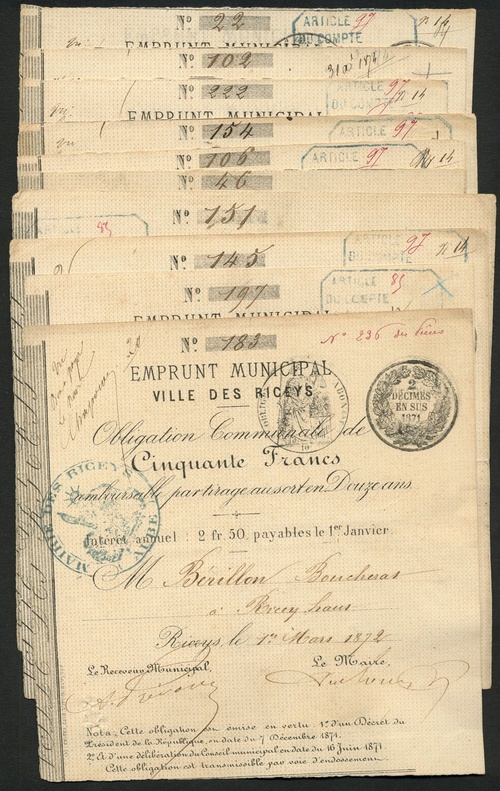 Nº 22
ARTICLE 97
DU COMPTE
Nº 14
EMPRUNT MUNICIPAL
Nº 102
Nº 222
ARTICLE 97
DU COMPTE
Nº 14
EMPRUNT MUNICIPAL
Nº 154
ARTICLE 97
Nº 106
ARTICLE 97
Nº 14
Nº 46
Nº 151
85
Nº 145
ARTICLE 97
DU COMPTE
Nº 14
Nº 197
ARTICLE 85
DU COMPTE
EMPRUNT MUNICIPAL
Nº 183
Nº 236 des
EMPRUNT MUNICIPAL
VILLE DES RICEYS
2
DÉCIMES
EN SUS
1871
Obligation Communale de
Cinquante Francs
remboursable par tirage au sort en Douze ans.
MAIRIE DES RICEYS
AUBE
Intérêt annuel : 2 fr. 50, payables le 1er Janvier.
M Bérillon Boucherat
à Ricey haut
Riceys, le 1er Mars 1872
Le Receveur Municipal,
Le Maire,
Nota: Cette obligation est émise en vertu : 1º d'un Décret du
Président de la République, en date du 7 Décembre 1871.
2º d'une délibération du Conseil municipal en date du 16 Juin 1871
Cette obligation est transmissible par voie d'endossement.